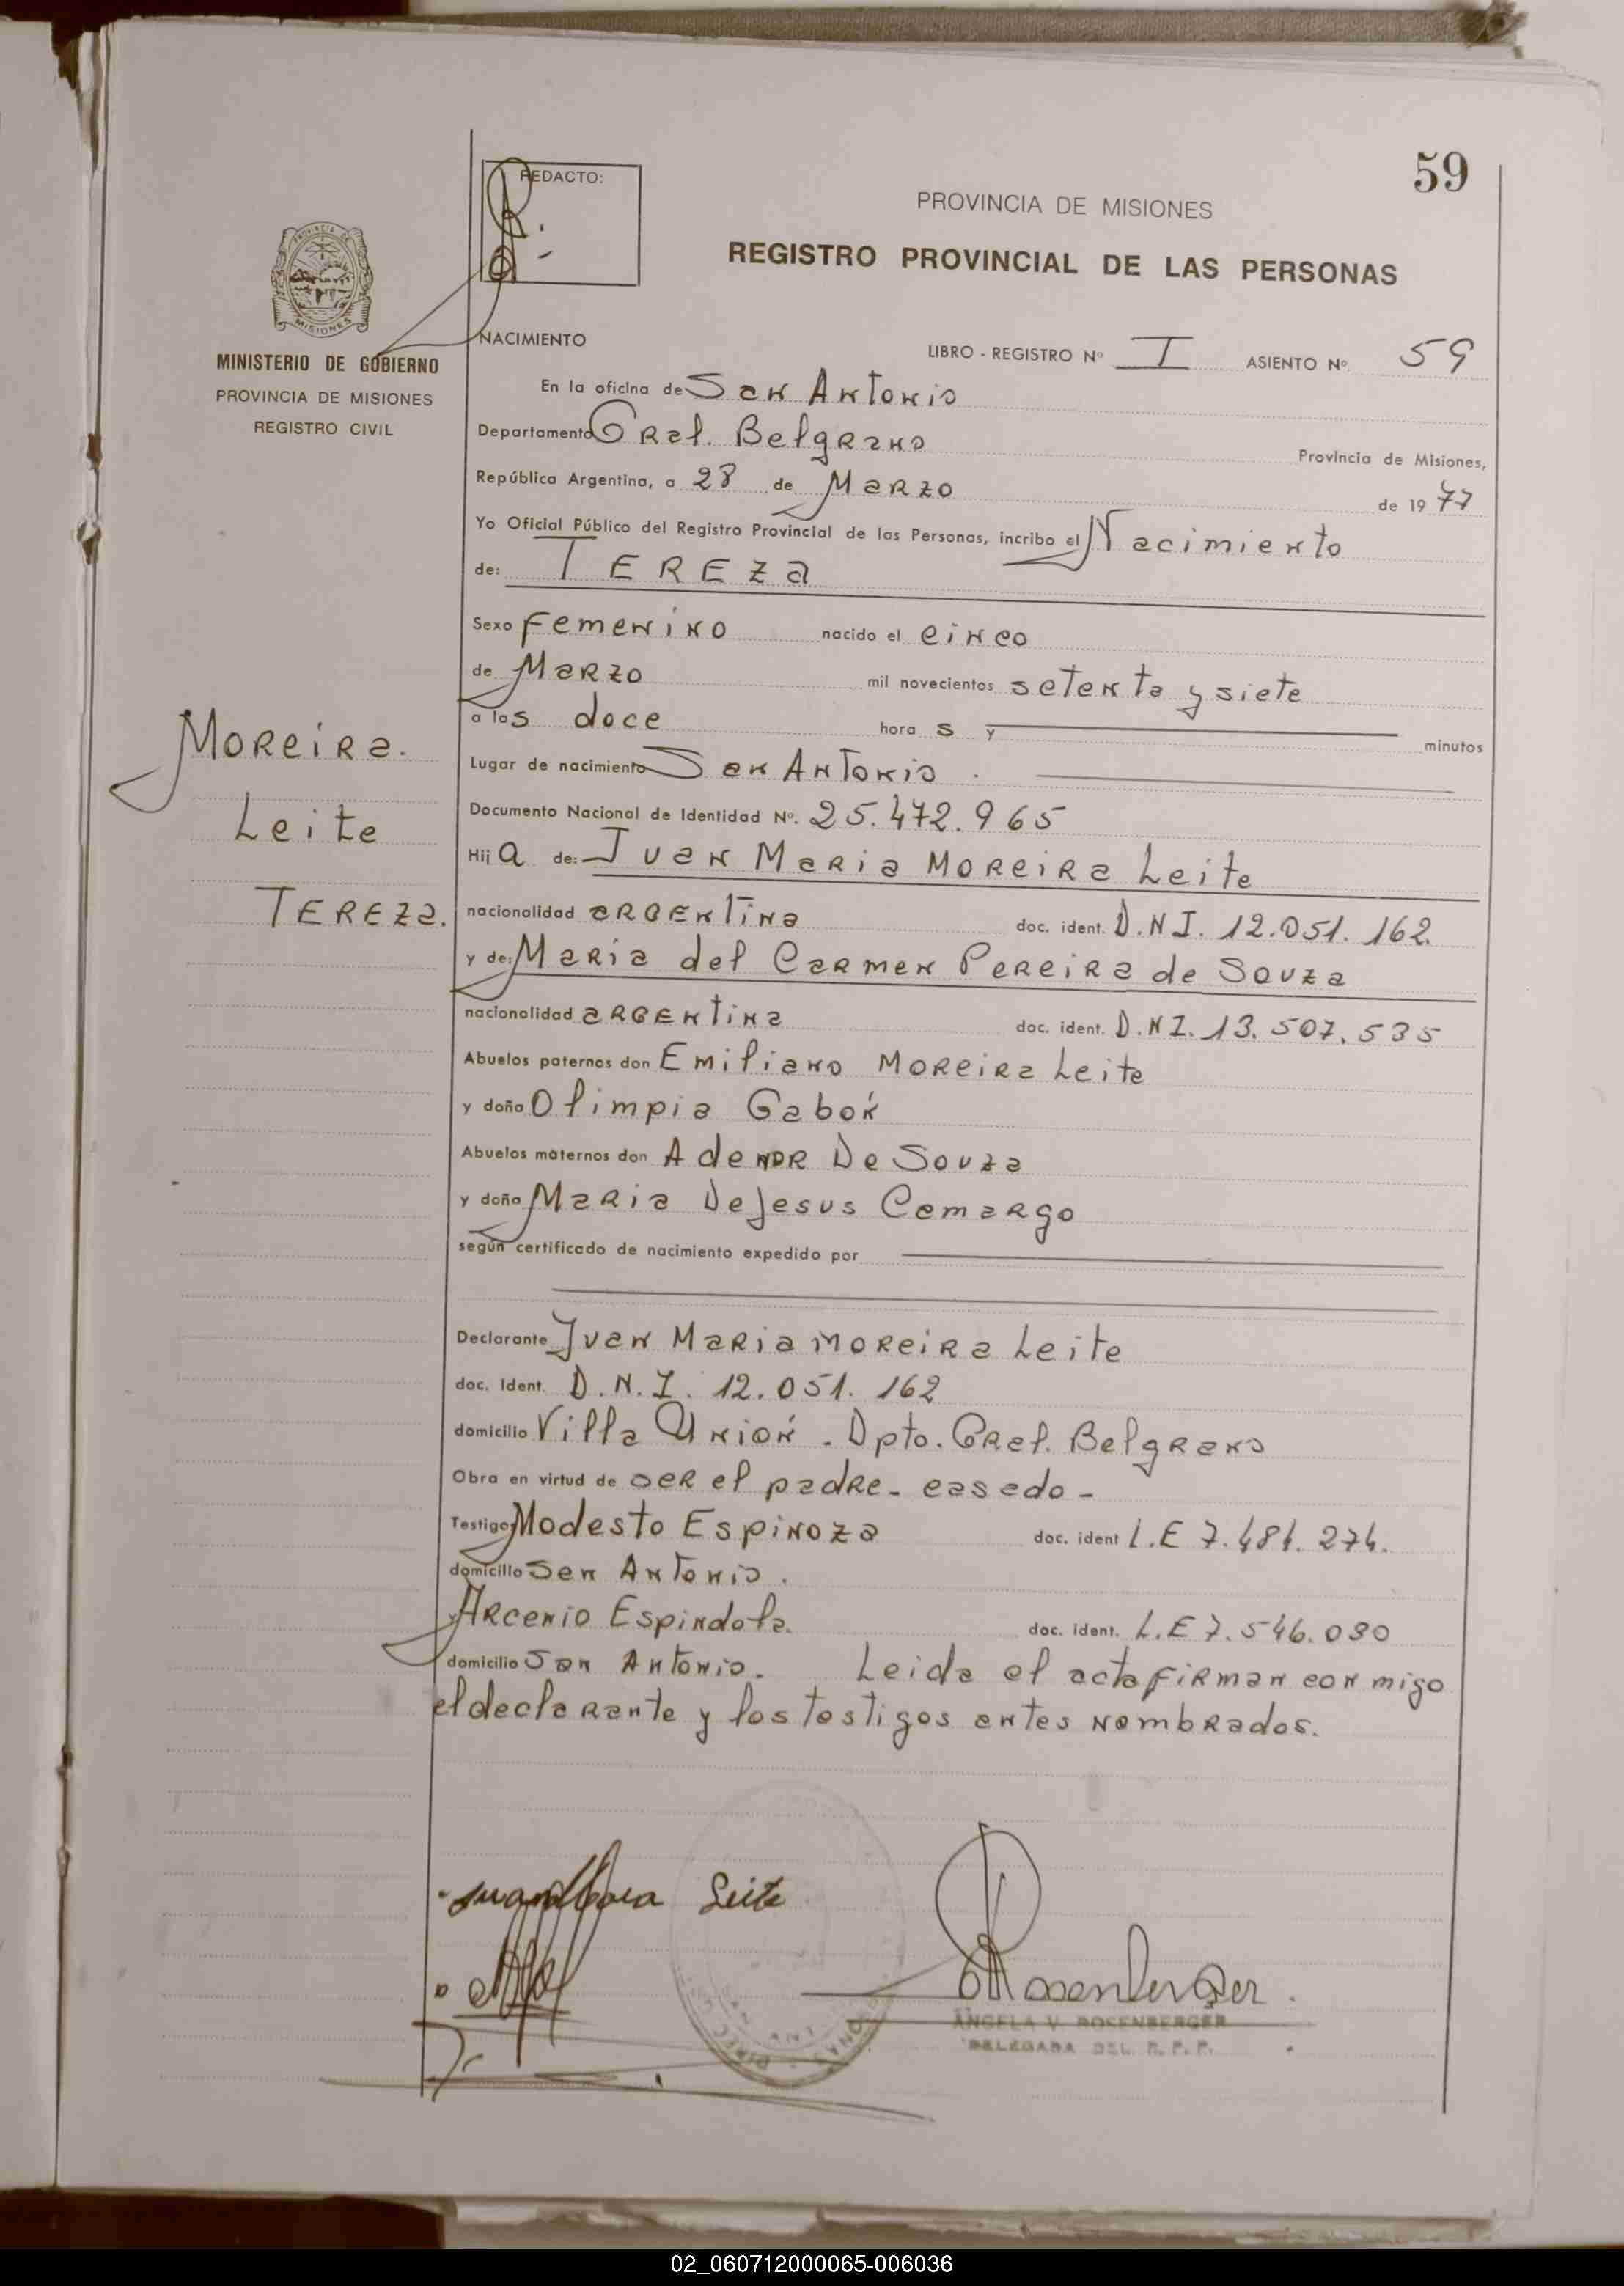 59
REDACTO:
PROVINCIA DE MISIONES
REGISTRO PROVINCIAL DE LAS PERSONAS
MISIONES
MINISTERIO DE GOBIERNO
PROVINCIA DE MISIONES
REGISTRO CIVIL
NACIMIENTO LIBRO - REGISTRO Nº I ASIENTO Nº 59
En la oficina de San Antonio
Departamento Gral. Belgrano Provincia de Misiones,
República Argentina, a 28 de Marzo de 1977
Yo Oficial Público del Registro Provincial de las Personas, incribo el Nacimiento
de: TEREZA
Sexo Femenino nacido el cinco
de Marzo mil novecientos setenta y siete
a las doce hora s y minutos
Moreira
Leite
TEREZA.
Lugar de nacimiento San Antonio.
Documento Nacional de Identidad Nº. 25.472.965
Hij a de: Juan Maria Moreira Leite
nacionalidad argentina doc. ident. D.N.I. 12.051.162.
y de: Maria del Carmen Pereira de Souza
nacionalidad argentina doc. ident. D.N.I. 13.507.535
Abuelos paternos don Emiliano Moreira Leite
y doña Olimpia Gaboń
Abuelos maternos don Adenor De Souza
y doña Maria DeJesus Camargo
según certificado de nacimiento expedido por
Declarante Juan Maria Moreira Leite
doc. Ident. D.N.I. 12.051.162
domicilio Villa Unión. Dpto. Gral. Belgrano
Obra en virtud de ser el padre - casado -
Testigo Modesto Espinoza doc. ident L.E 7.481.274.
domicilio San Antonio.
y Arcenio Espindola. doc. ident. L.E 7.546.030
domicilio San Antonio. Leida el acta firman con migo
el declarante y los testigos antes nombrados.
Juan Maria Leite
Rosenberger
ANGELA V. ROSENBERGER
DELEGADA DEL R. P. P.
02_060712000065-006036